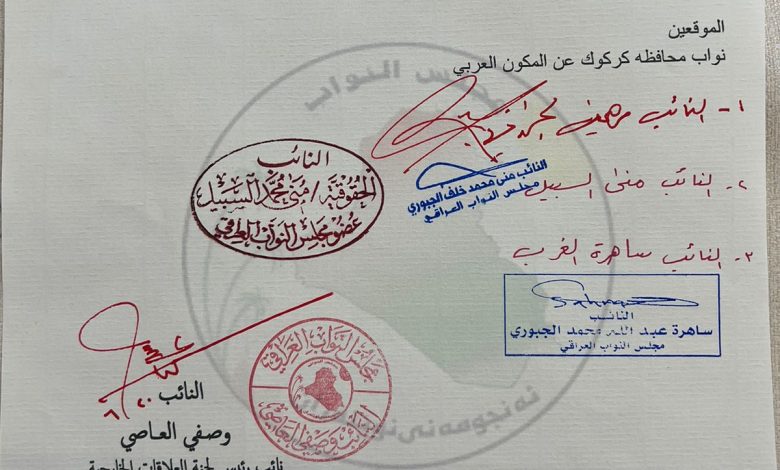 الموقعين
نواب محافظه كركوك عن المكون العربي
١- النائب
النائب
الحقوقية / منى محمد السبيل
عضو مجلس النواب العراقي
النائب منى محمد خلف الجبوري
مجلس النواب العراقي
٢- النائب منى السبيل
٣- النائب ساهرة الغرب
النائب
ساهرة عبد الله محمد الجبوري
مجلس النواب العراقي
مجلس النواب العراقي
النائب وصفي العاصي
النائب
وصفي العاصي
نائب رئيس لجنة العلاقات الخارجية
مجلس النواب